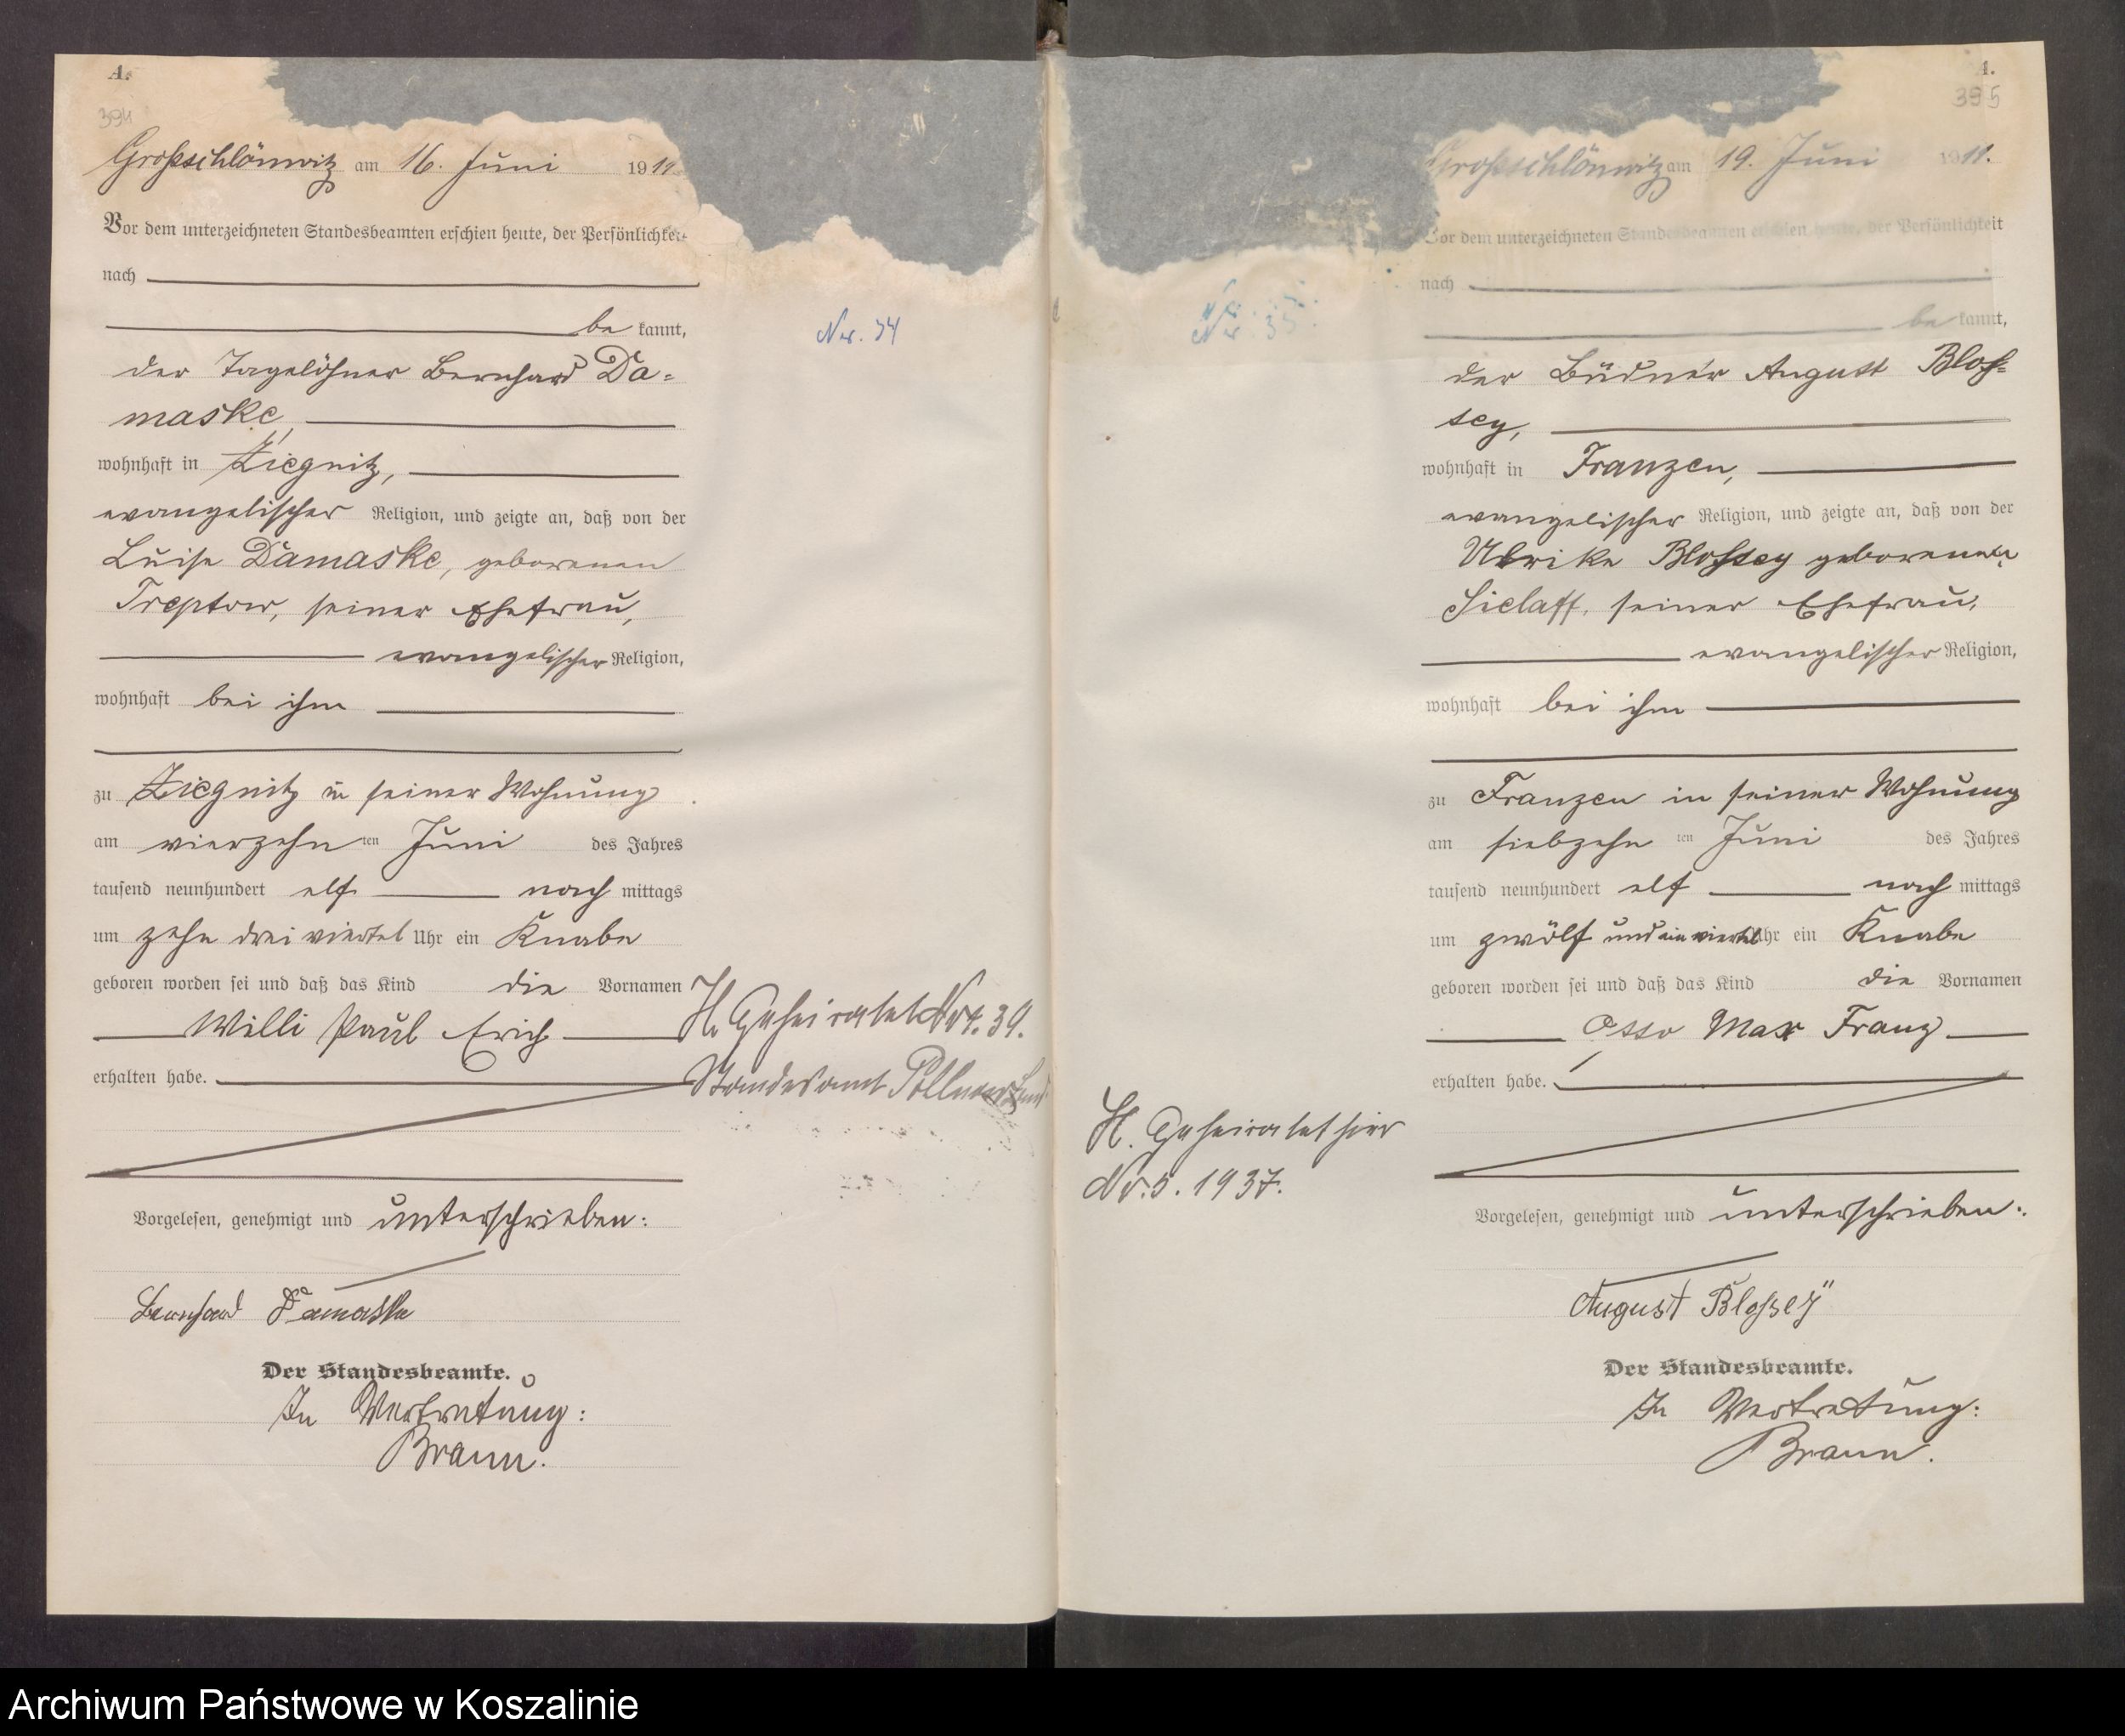 A.
394
Großschlönwitz am 16. Juni 1911
Vor dem unterzeichneten Standesbeamten erschien heute, der Persönlichkeit
nach
be kannt,
der Tagelöhner Bernhard Da=
maske,
wohnhaft in Ziegnitz,
evangelischer Religion, und zeigte an, daß von der
Luise Damaske, geborenen
Treptow, seiner Ehefrau,
evangelischer Religion,
wohnhaft bei ihm
zu Ziegnitz in seiner Wohnung
am vierzehn ten Juni des Jahres
tausend neunhundert elf nach mittags
um zehn drei viertel Uhr ein Knabe
geboren worden sei und daß das Kind die Vornamen
Willi Paul Erich
erhalten habe.
Vorgelesen, genehmigt und unterschrieben:
Bernhard Damaske
Der Standesbeamte.
In Vertretung:
Braun.
Nr. 34
H. Geheiratet Nr. 39.
Standesamt
Nr. 35.
H. Geheiratet hier
Nr. 5. 1937.
395
Großschlönwitz am 19. Juni 1911.
Vor dem unterzeichneten Standesbeamten erschien heute, der Persönlichkeit
nach
be kannt,
der Büdner August Blos-
sey,
wohnhaft in Franzen,
evangelischer Religion, und zeigte an, daß von der
Ulrike Blossey geborenen
Sielaff, seiner Ehefrau,
evangelischer Religion,
wohnhaft bei ihm
zu Franzen in seiner Wohnung
am siebzehn ten Juni des Jahres
tausend neunhundert elf nach mittags
um zwölf und ein viertel Uhr ein Knabe
geboren worden sei und daß das Kind die Vornamen
Otto Max Franz
erhalten habe.
Vorgelesen, genehmigt und unterschrieben:
August Bloßey
Der Standesbeamte.
In Vertretung:
Braun.
Archiwum Państwowe w Koszalinie